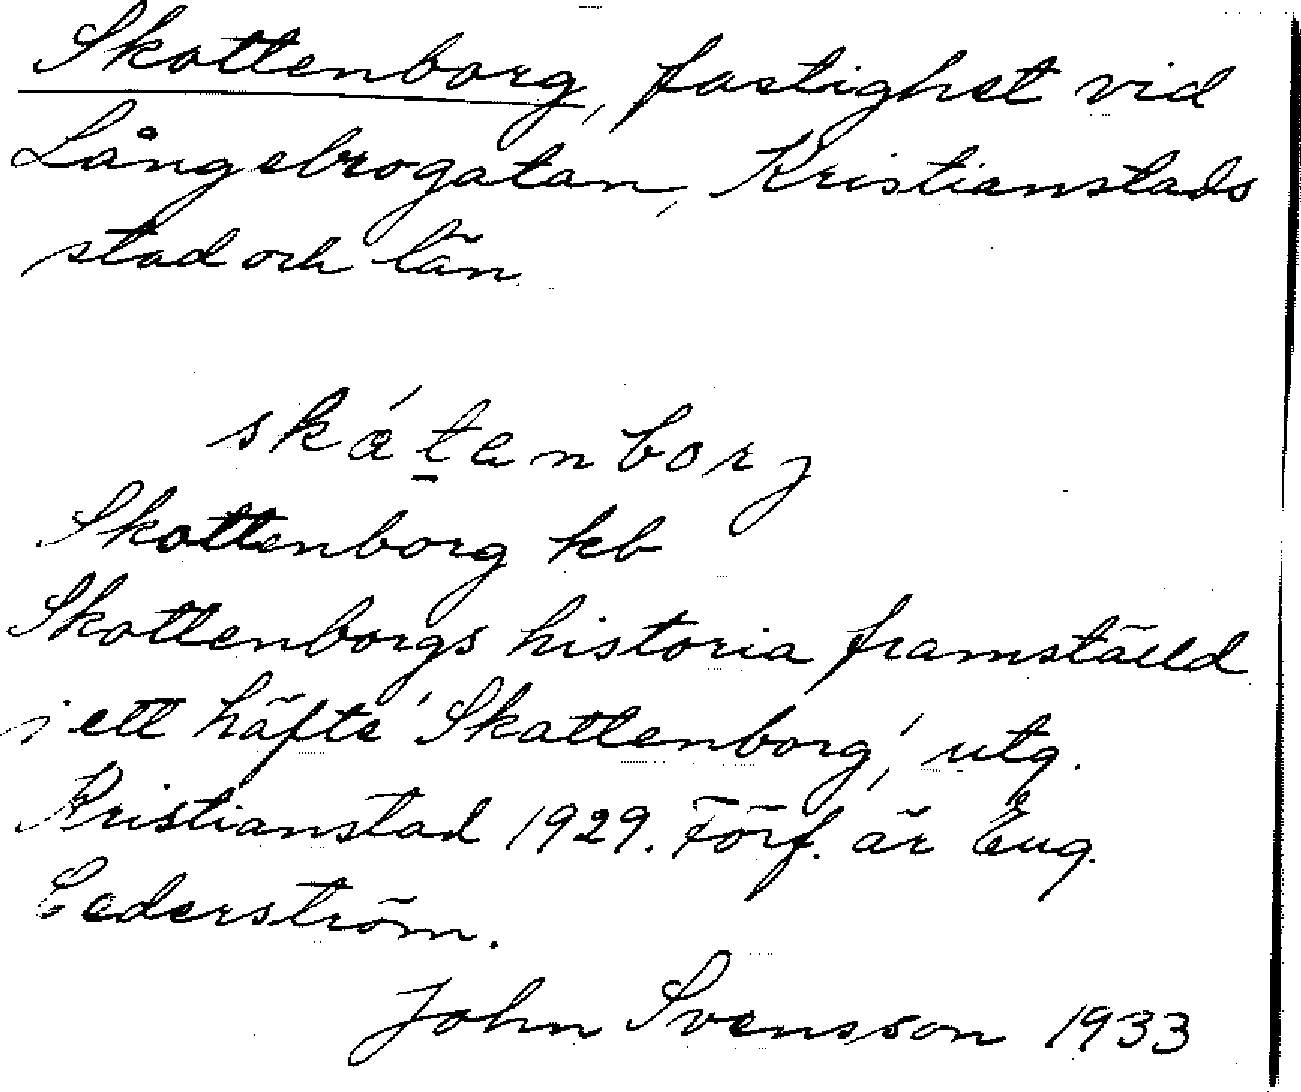 Skottenborg, fastighet vid
Långebrogatan, Kristianstads
stad och län.
skát̲anborj
Skottenborg kb
Skottenborgs historia framställd
i ett häfte 'Skottenborg', utg.
Kristianstad 1929. Förf. är Eug.
Cederström.
John Svensson 1933